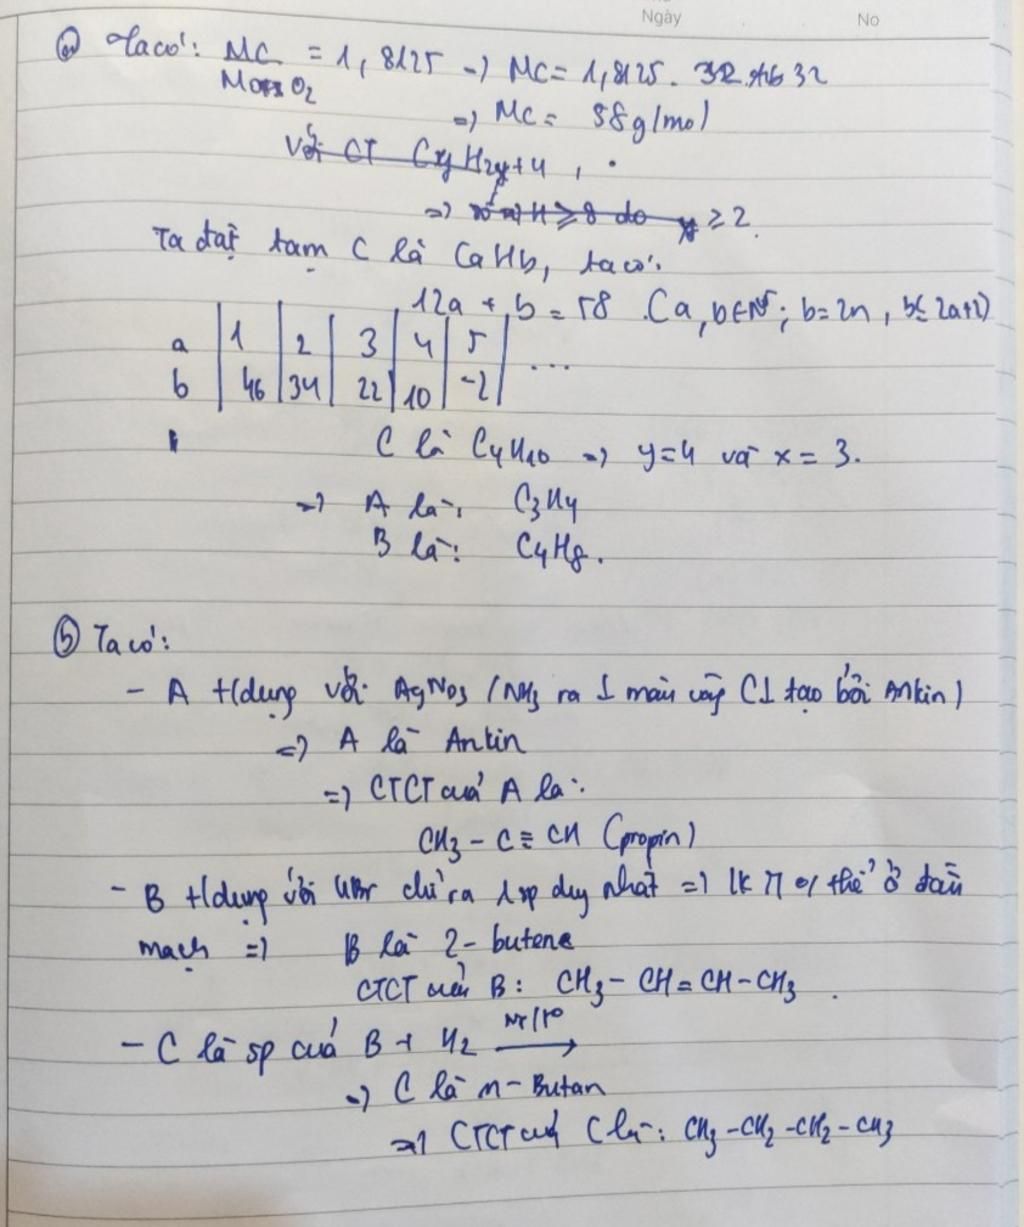 Ngày No
a Ta có: MC = 1,8125 => MC = 1,8125. 32
MO2
=> MC = 58g/mol
Với CT CyH2y+4,
=> H ≥ 8 do y ≥ 2.
Ta đặt tạm C là CaHb, ta có:
12a + b = 58 (a, b∈N*; b=2n, b≤2a+2)
a | 1 | 2 | 3 | 4 | 5 |
b | 46 | 34 | 22 | 10 | -2 | ...
C là C4H10 => y=4 và x=3.
=> A là: C3H4
B là: C4H8.
b Ta có:
- A t/dụng với AgNO3/NH3 ra ↓ màu vàng (↓ tạo bởi Ankin)
=> A là Ankin
=> CTCT của A là:
CH3 - C ≡ CH (propin)
- B t/dụng với HBr chỉ ra 1sp duy nhất => lk π o/ thể ở đầu
mạch => B là 2-butene
CTCT của B: CH3 - CH = CH - CH3.
- C là sp của B + H2 Ni/t° →
=> C là n-Butan
=> CTCT của C là: CH3 - CH2 - CH2 - CH3